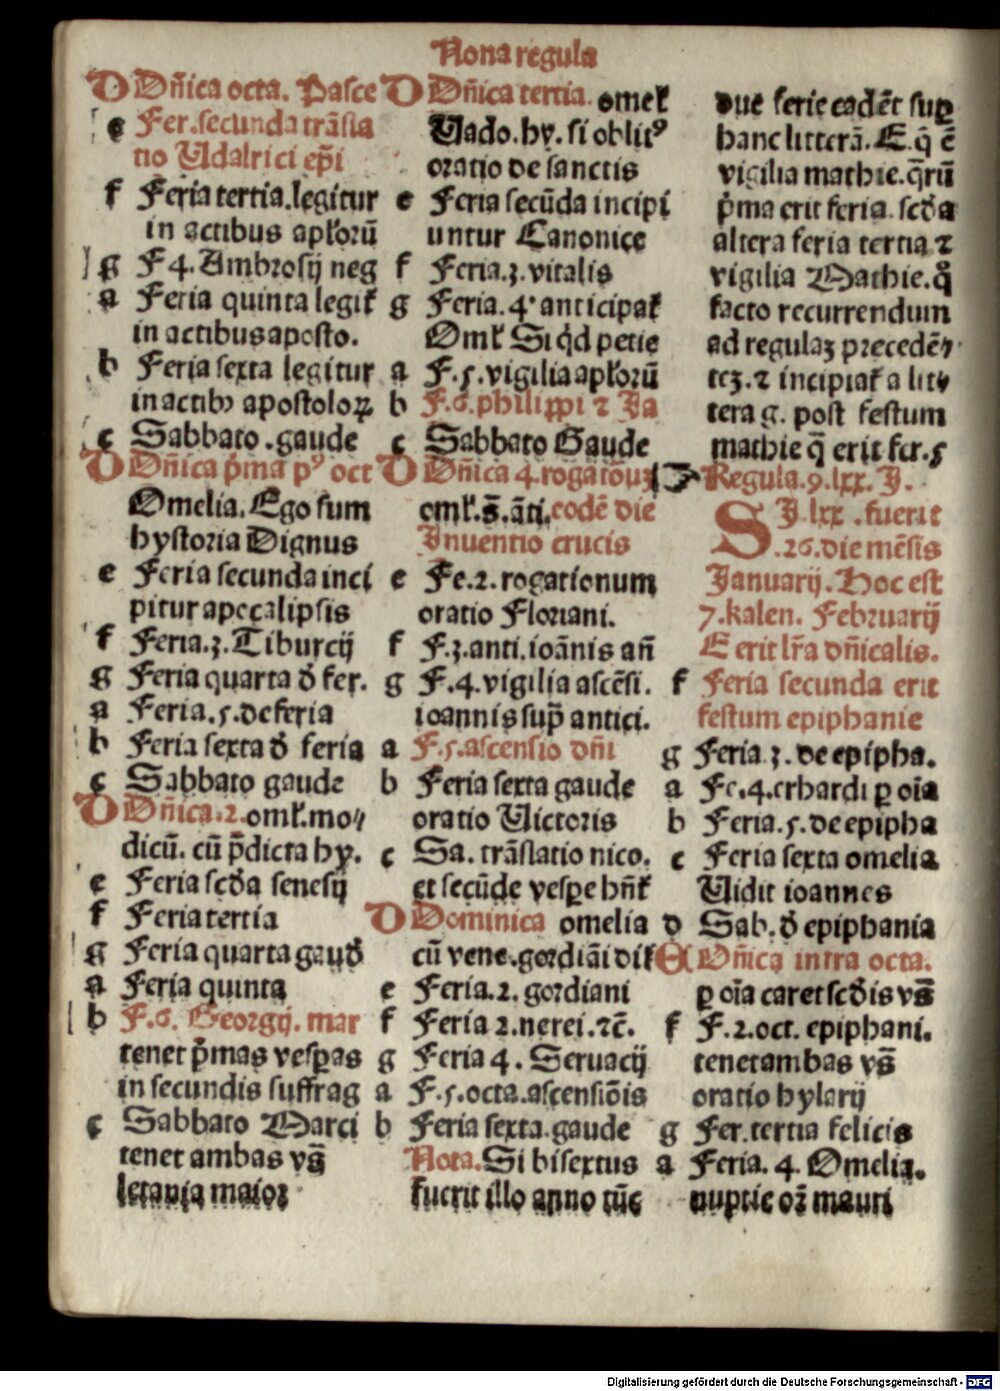 Nona regula
D Dñica octa. Pasce
e Fer. secunda trãsla
tio Udalrici epi
f Feria tertia. legitur
in actibus apłorũ
g F 4. Ambrosij neg
a Feria quinta legit̃
in actibus aposto.
b Feria sexta legitur
in actibꝰ apostoloꝝ
c Sabbato . gaude
D Dñica p̃ma pꝰ oct
Omelia. Ego sum
hystoria Dignus
e Feria secunda inci
pitur apocalipsis
f Feria.3. Tiburcij
g Feria quarta ð fer.
a Feria.5. de feria
b Feria sexta ð feria
c Sabbato gaude
D Dñica.2. omł. mo⸗
dicũ. cũ p̃dicta hy.
e Feria scða senesij
f Feria tertia
g Feria quarta gauð
a Feria quinta
b F.6. Georgij. mar
tenet p̃mas vesꝑas
in secundis suffrag
c Sabbato Marci
tenet ambas vs̃
letania maior
D Dñica tertia. omeł
Uado. hy. si oblitꝰ
oratio de sanctis
e Feria secũda incipi
untur Canonice
f Feria.3. vitalis
g Feria.4. anticipat̃
Omł Si qd petie
a F.5. vigilia apłorũ
b F.6. philippi ⁊ Ja
c Sabbato Gaude
D Dñica 4. rogatiõuʒ
omł. s̃. ãti. eodẽ die
Inuentio crucis
e Fe.2. rogationum
oratio Floriani.
f F.3. anti. ioãnis añ
g F.4. vigilia ascẽsi.
ioannis sup̃ antici.
a F.5. ascensio dñi
b Feria sexta gaude
oratio Uictoris
c Sa. trãslatio nico.
et secũde vesꝑe hñt̃
D Dominica omelia
cũ vene. gordiãi dił
e Feria.2. gordiani
f Feria 2. nerei. ⁊c̃.
g Feria 4. Seruacij
a F.5. octa. ascensiõis
b Feria sexta. gaude
Nota. Si bisextus
fuerit illo anno tũc
due ferie eadẽt suꝑ
hanc litterã. E. q̃ ẽ
vigilia mathie. q̃rũ
p̃ma erit feria. scða
altera feria tertia ⁊
vigilia Mathie. q̊
facto recurrendum
ad regulaʒ precedẽ⸗
teʒ. ⁊ incipiat̃ a lit⸗
tera g. post festum
mathie q̃ erit fer. 5
☞ Regula. 9. lxx. J.
SJ lxx . fuerit
.26. die mẽsis
Januarij. Hoc est
7. kalen. Februarij
E erit lr̃a dñicalis.
f Feria secunda erit
festum epiphanie
g Feria 3. de epipha.
a Fe.4. erhardi ꝑ oĩa
b Feria.5. de epipha
c Feria sexta omelia
Uidit ioannes
d Sab. ð epiphania
E Dñica infra octa.
ꝑ oĩa caret scðis vs̃
f F.2. oct. epiphani.
tenet ambas vs̃
oratio hylarij
g Fer. tertia felicis
a Feria. 4. Omelia.
nuptie or̃ mauri
Digitalisierung gefördert durch die Deutsche Forschungsgemeinschaft - DFG